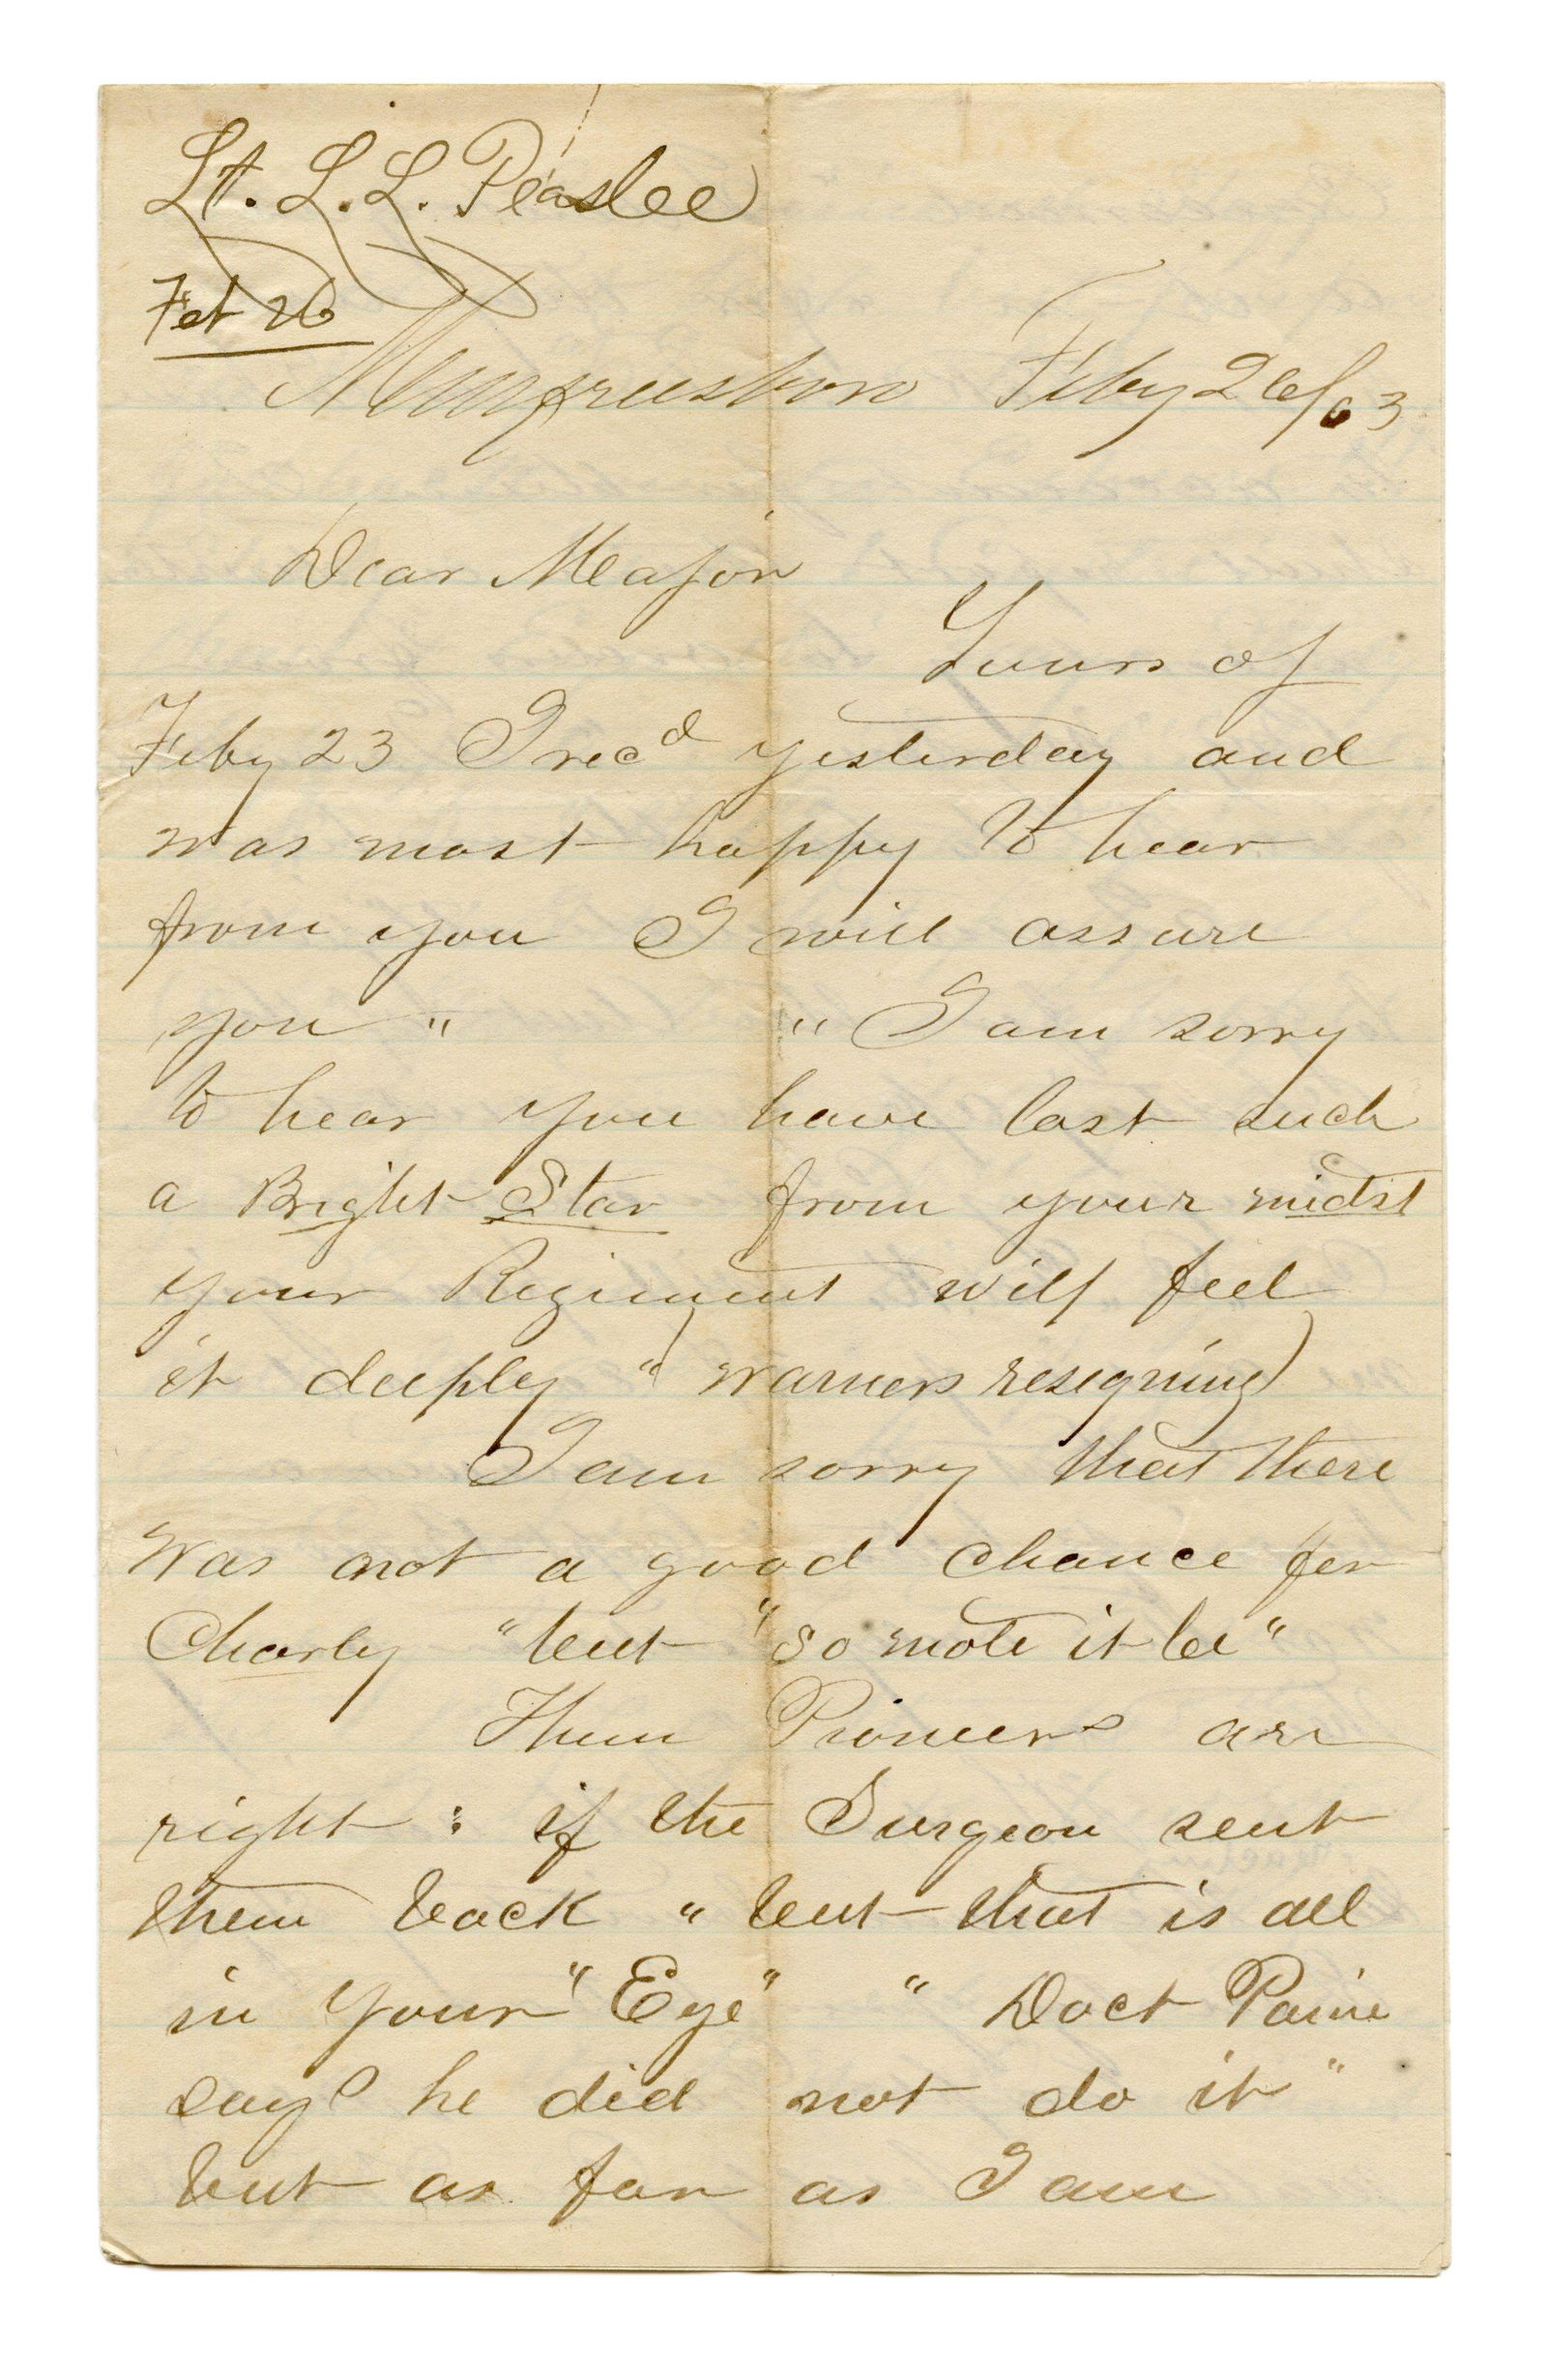 Lt. L. L. Peaslee
Feb 26
Murfreesboro Feby 26/63
Dear Major
Yours of
Feby 23 I recd yesterday and
was most happy to hear
from you I will assure
you " " I am sorry
to hear you have lost such
a Bright Star from your midst
your Regiment will feel
it deeply "(Warners resigning)
I am sorry that there
was not a good chance for
Charly "but "so mote it be"
Them Pioneers are
right : if the Surgeon sent
them back " but that is all
in your "Eye" " Doct Paine
says he did not do it"
but as far as I am